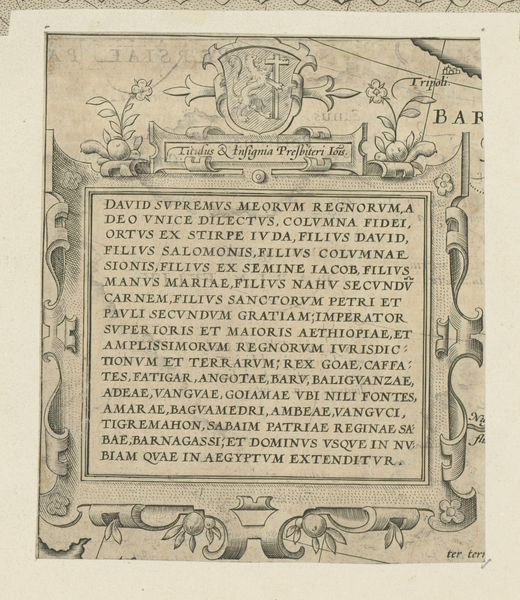 PERSIAE PA
Tripoli.
BAR
Titulus & Insignia Presbiteri Ioīs.
DAVID SVPREMVS MEORVM REGNORVM, A
DEO VNICE DILECTVS, COLVMNA FIDEI,
ORTVS EX STIRPE IVDA, FILIVS DAVID,
FILIVS SALOMONIS, FILIVS COLVMNAE
SIONIS, FILIVS EX SEMINE IACOB, FILIVS
MANVS MARIAE, FILIVS NAHV SECVNDV̄
CARNEM, FILIVS SANCTORVM PETRI ET
PAVLI SECVNDVM GRATIAM; IMPERATOR
SVPERIORIS ET MAIORIS AETHIOPIAE, ET
AMPLISSIMORVM REGNORVM IVRISDIC-
TIONVM ET TERRARVM; REX GOAE, CAFFA-
TES, FATIGAR, ANGOTAE, BARV, BALIGVANZAE,
ADEAE, VANGVAE, GOIAMAE VBI NILI FONTES,
AMARAE, BAGVAMEDRI, AMBEAE, VANGVCI,
TIGREMAHON, SABAIM PATRIAE REGINAE SA-
BAE, BARNAGASSI; ET DOMINVS VSQVE IN NV-
BIAM QVAE IN AEGYPTVM EXTENDITVR.
ter